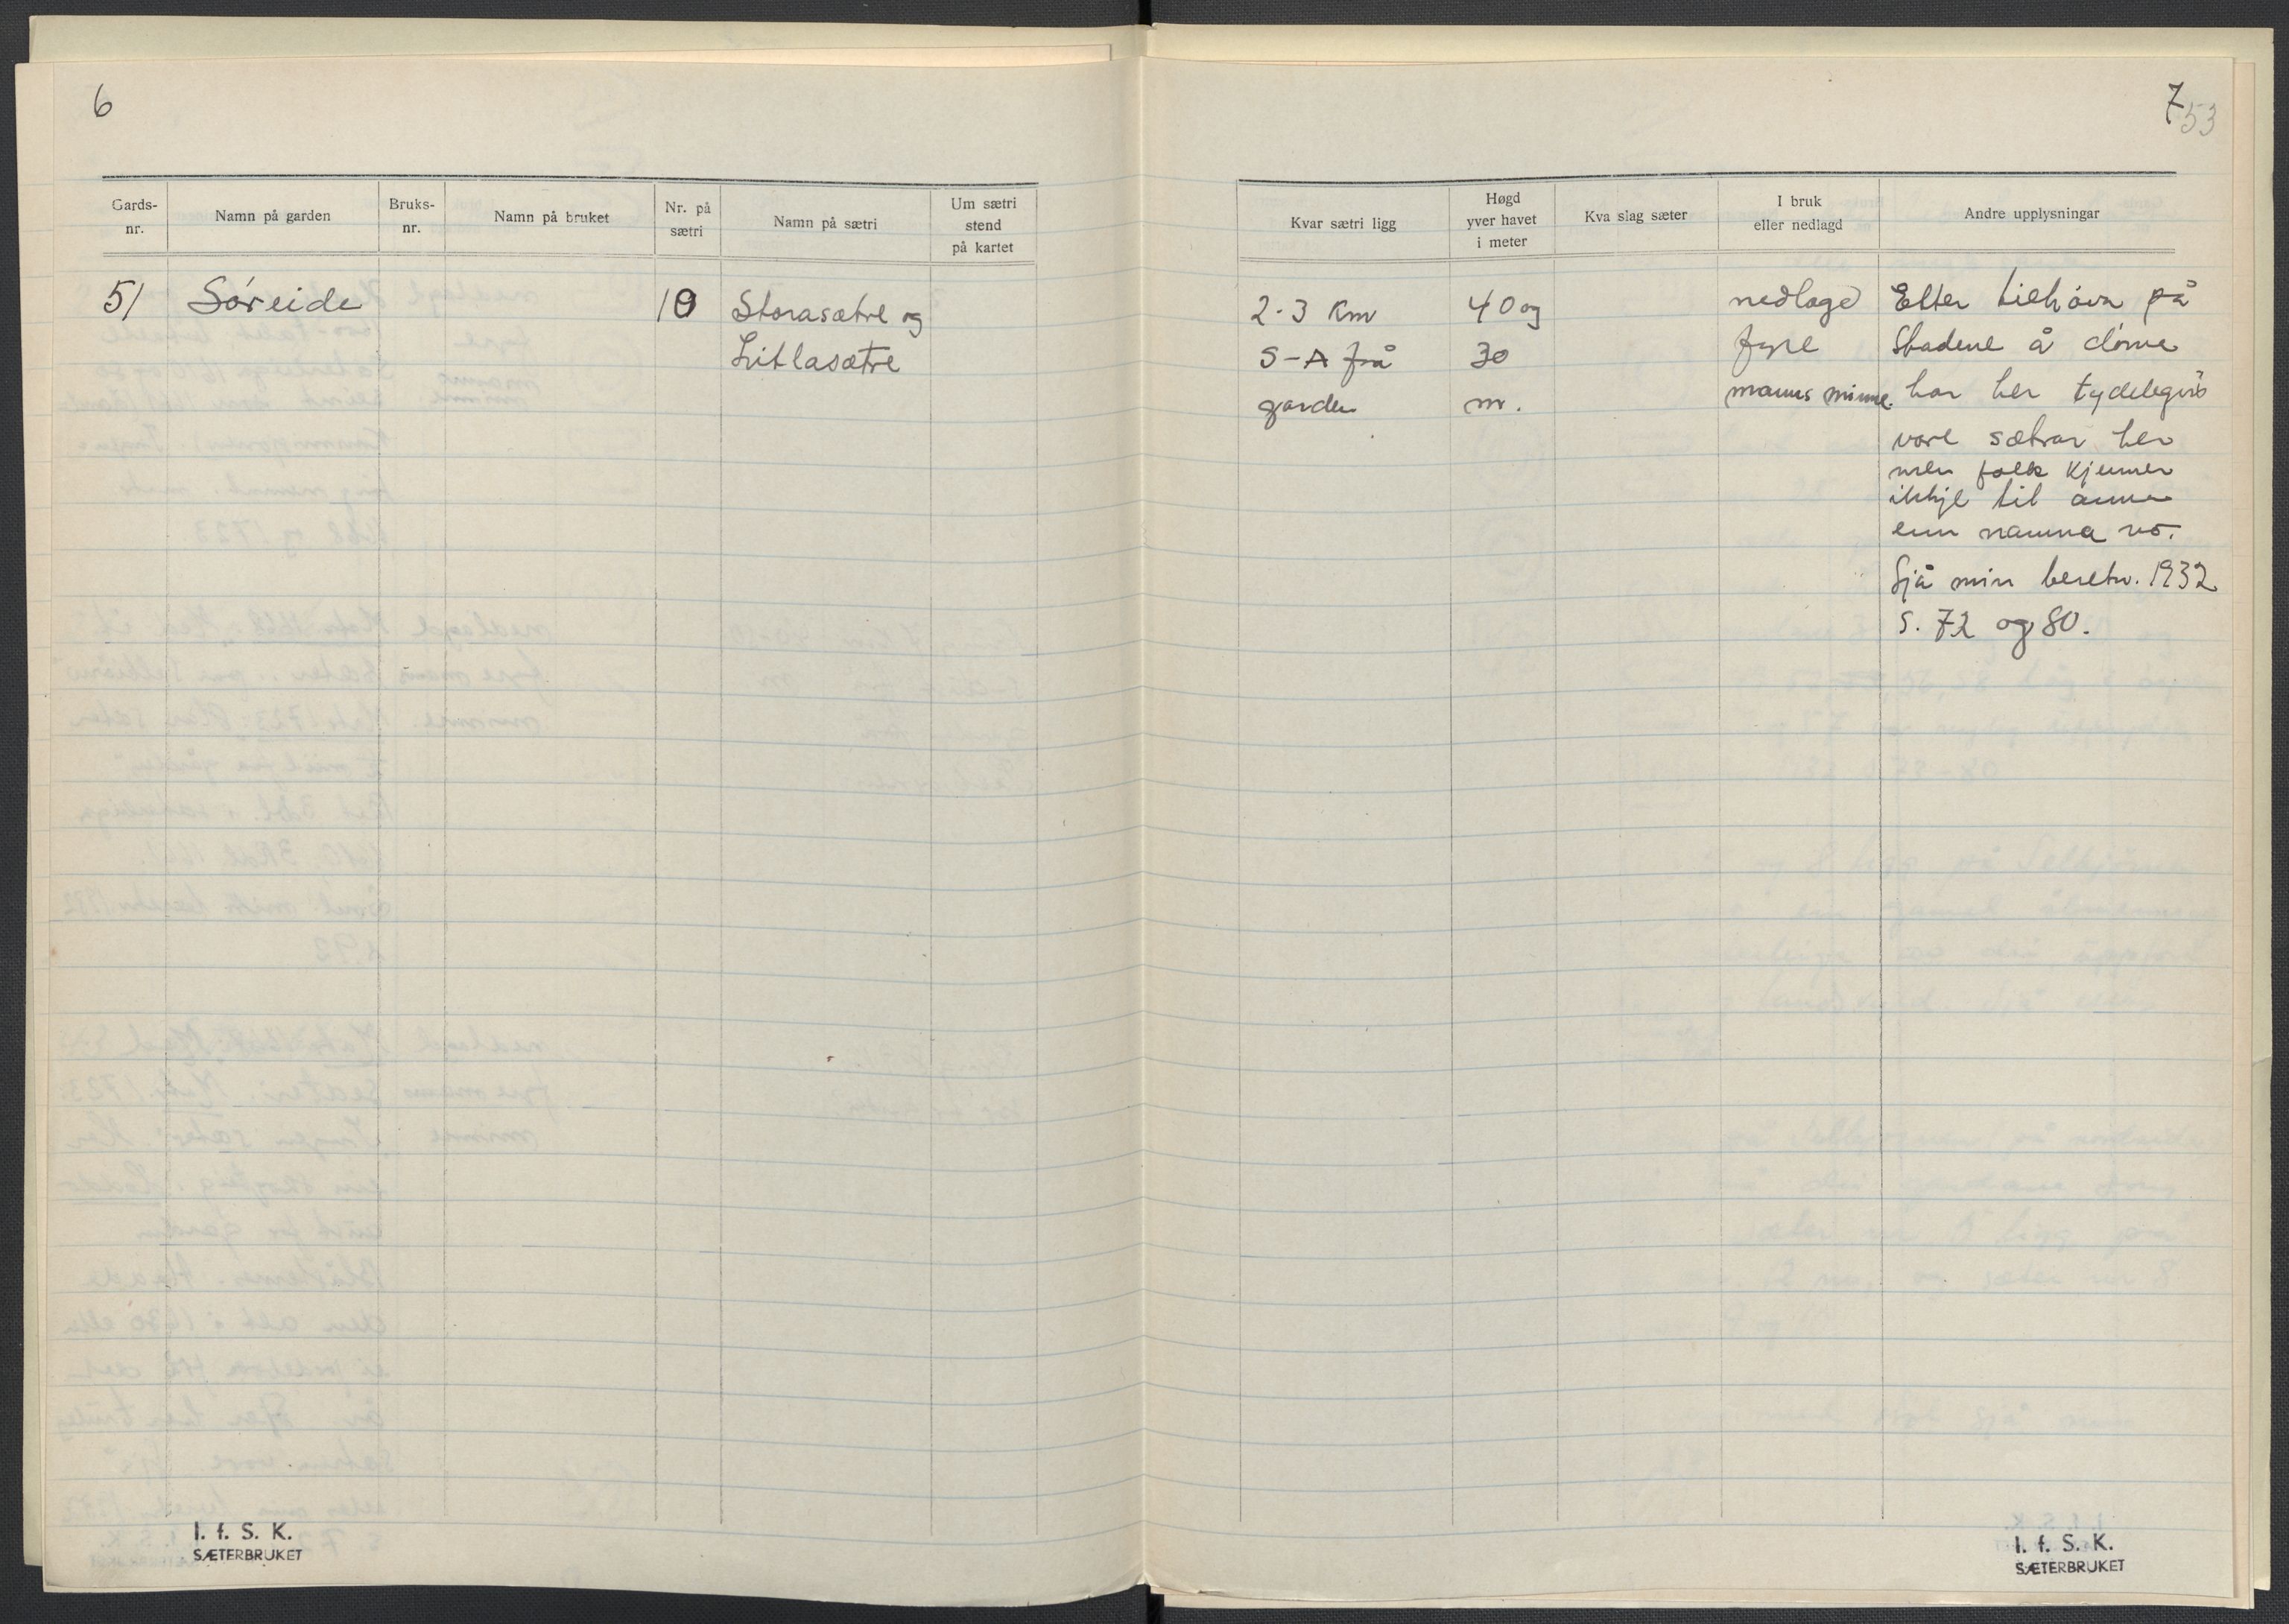 6
Gards-
nr.
Namn på garden
Bruks-
nr.
Namn på bruket
Nr. på
sætri
Namn på sætri
Um sætri
stend
på kartet
51 Søreide 10 Storasætre og
Litlasætre
I. f. S. K.
SÆTERBRUKET
7
53
Kvar sætri ligg
Høgd
yver havet
i meter
Kva slag sæter
I bruk
eller nedlagd
Andre upplysningar
2-3 Km
S-A frå
garden
40 og
30
m.
nedlagd
fyre
manns minne.
Etter tilhøva på
Stadene å døme
har her tydelegvis
vore sætrar her
men folk kjenner
ikkje til anna
enn namna no.
Sjå min beretn. 1932
S. 72 og 80.
I. f. S. K.
SÆTERBRUKET